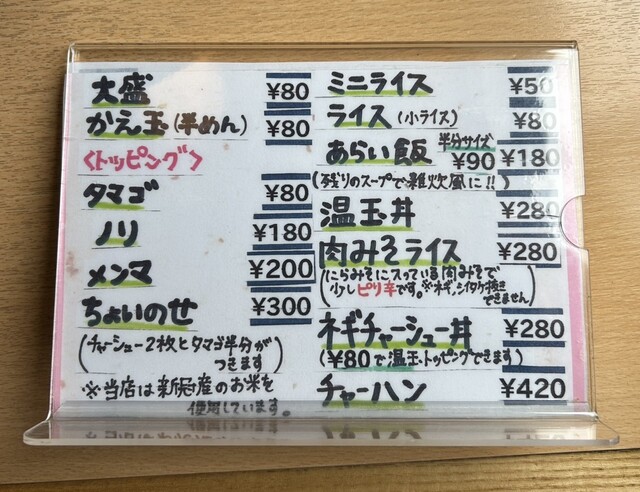 大盛 ¥80
かえ玉(半めん) ¥80
〈トッピング〉
タマゴ ¥80
ノリ ¥180
メンマ ¥200
ちょいのせ ¥300
(チャーシュー2枚とタマゴ半分が
つきます)
※当店は新潟産のお米を
使用しています。
ミニライス ¥50
ライス(小ライス) ¥80
あらい飯 半分サイズ ¥90 ¥180
(残りのスープで雑炊風に!!)
温玉丼 ¥280
肉みそライス ¥280
(にらみそに入っている肉みそで
少しピリ辛です。※ネギ、シイタケ抜き
できません)
ネギチャーシュー丼 ¥280
(¥80で温玉トッピングできます)
チャーハン ¥420